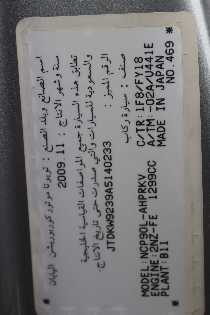 اسم الصانع وبلد الصنع : تويوتا موتور كوربوريشن اليابان
سنة وشهر الانتاج : 2009 11
تطابق هذه السيارة جميع المواصفات القياسية الخليجية
والسعودية للسيارات والتي صدرت حتى تاريخ الانتاج
الرقم المميز : JTDKW9239A5140233
صنف : سيارة ركاب
MODEL: NCP90L-AHPRKV
ENGINE: 2NZ-FE 1299CC
PLANT: B11
C/TR: 1F8/FY18
A/TR: -02A/U441E
MADE IN JAPAN
NO. 469